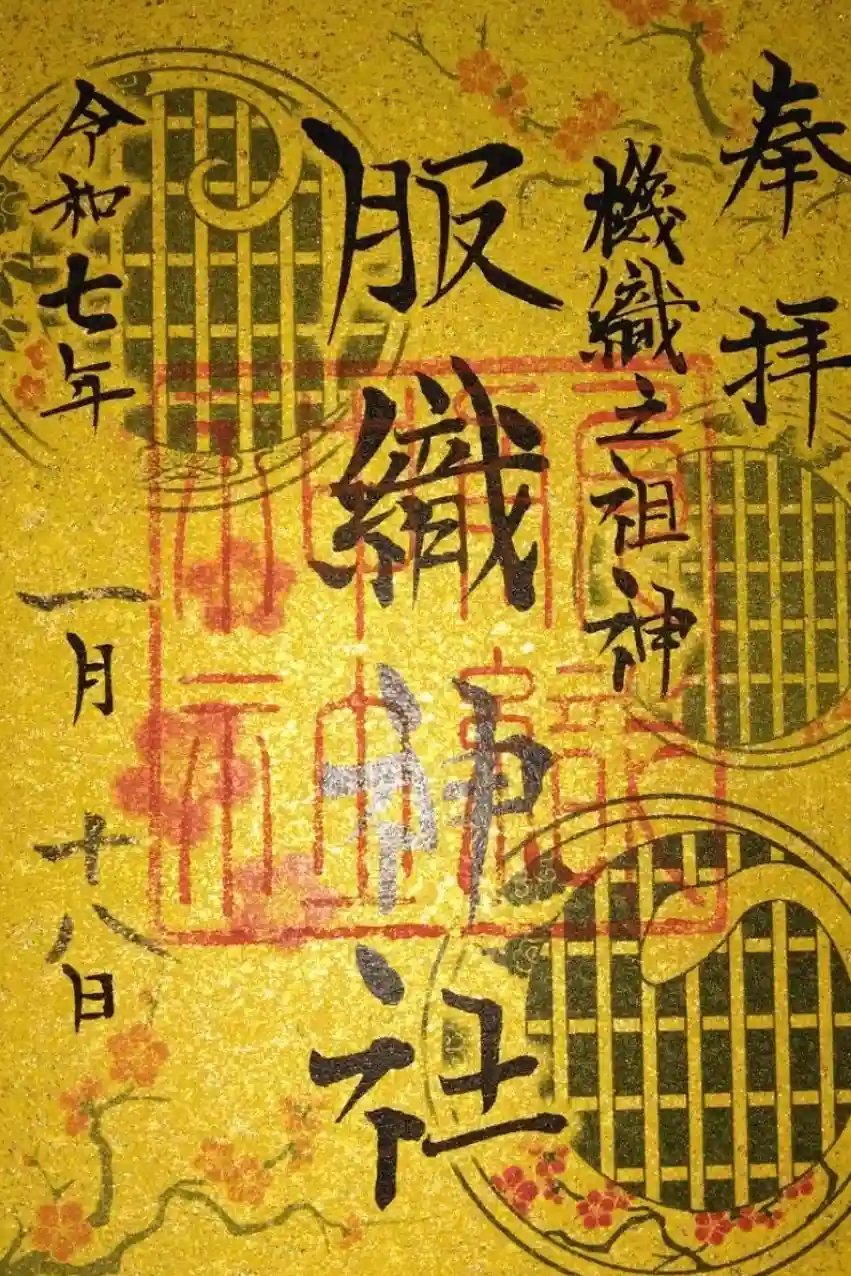 奉拝
機織之祖神
服織神社
令和七年一月十八日